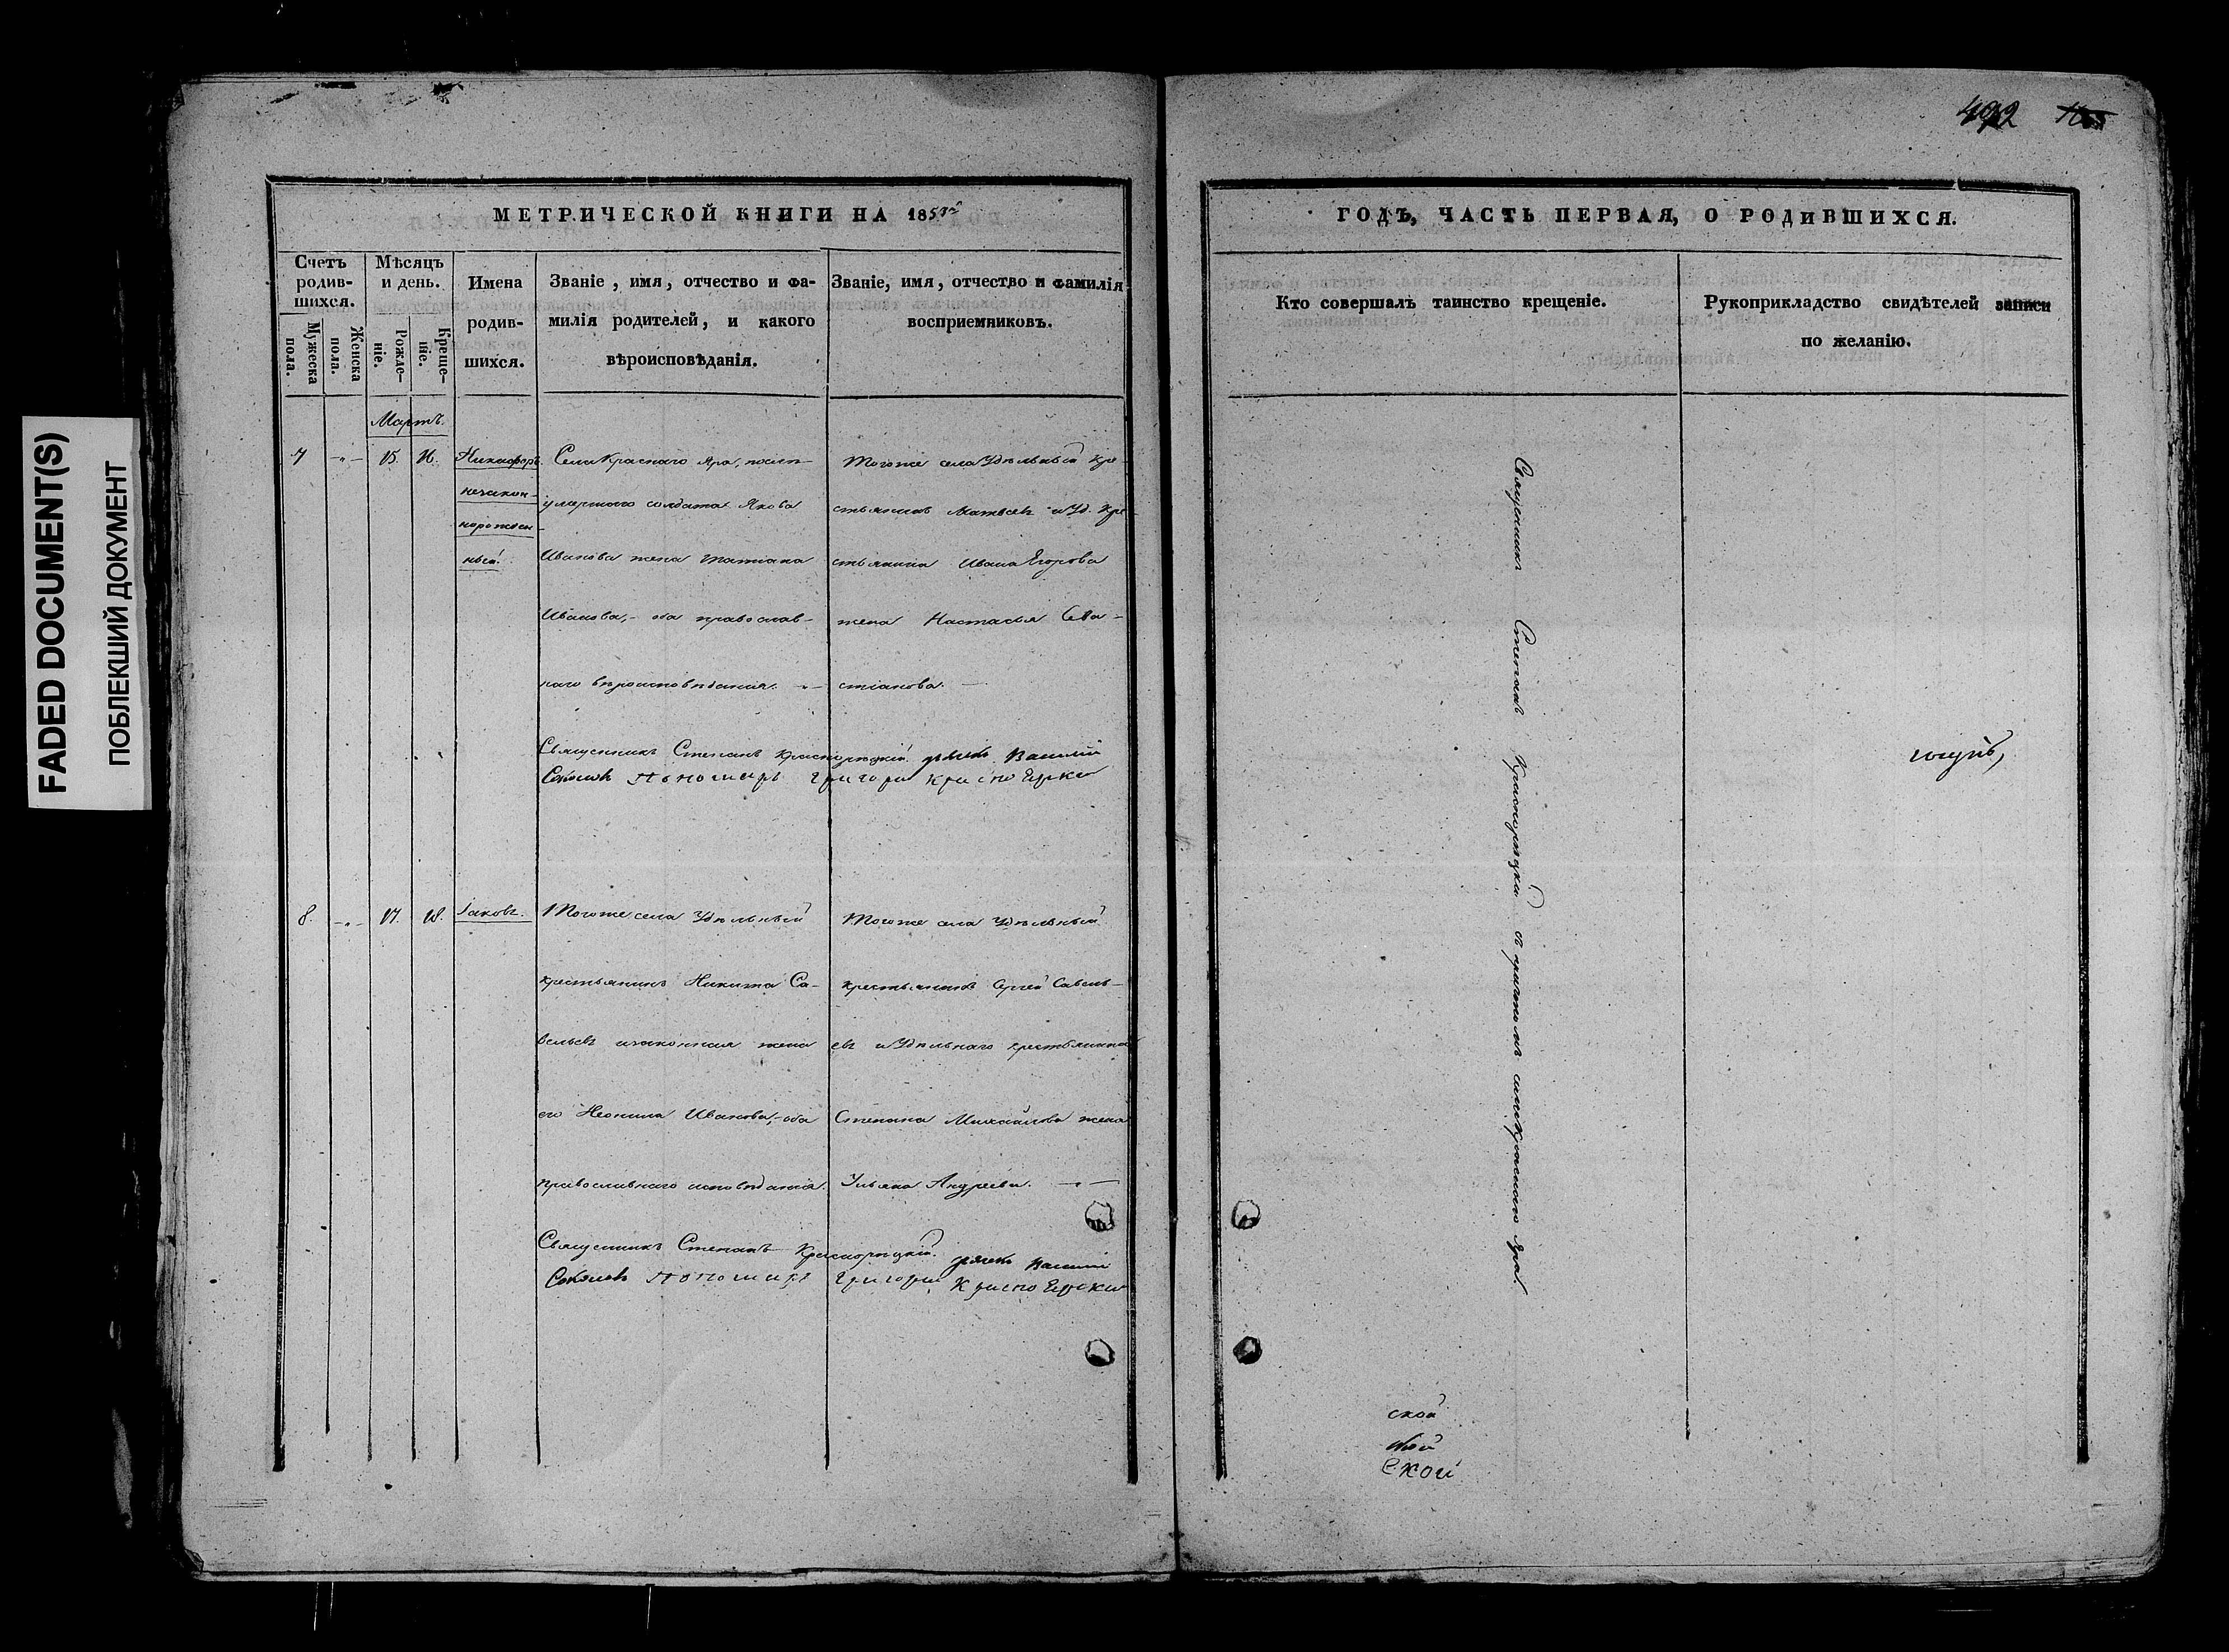 FADED DOCUMENT(S)
ПОБЛЕКШИЙ ДОКУМЕНТ
МЕТРИЧЕСКОЙ КНИГИ НА 185
Счетъ родив-шихся.
Мужеска пола.
Женска пола.
Мѣсяцъ и день.
Рожде-ніе.
Креще-ніе.
Имена
родив-
шихся.
Званіе, имя, отчество и фа-
милія родителей, и какого
вѣроисповѣданія.
Званіе, имя, отчество и фамилія
восприемниковъ.
Мартъ.
7 -„- 15. 16.
Никифоръ
незакон-
норожден-
ный.
Села Краснаго Яра,
умершаго солдата Якова
Иванова жена Татіана
Иванова,- оба православ-
наго вѣроисповѣданія. -„-
Тогоже села Удѣльный кре-
стьянинъ Матвей и Уд. кре-
стьянина Ивана Егорова
жена Настасья Сева-
стіанова. -
Священникъ Степанъ Красноряцкій. дьякъ Василій
Соколовъ Пономарь Григорий
8. -„- 17. 18.
Іаковъ.
Тогоже села Удѣльный
крестьянинъ Никита Са-
вельевъ и законная жена
его Неонила Иванова,-оба
православнаго исповѣданія.
Тогоже села Удѣльный
крестьянинъ Сергей Савель-
евъ и Удѣльнаго крестьянина
Степана Михайлова жена
Ульяна Андреева. -„-
Священникъ Степанъ Красноряцкій. дьякъ Василій
Соколовъ Пономарь Григорий
492
ГОДЪ, ЧАСТЬ ПЕРВАЯ, О РОДИВШИХСЯ.
Кто совершалъ таинство крещеніе.
Рукоприкладство свидѣтелей записи
по желанію.
Священникъ Степанъ Красноряцкій съ причтомъ села Краснаго Яра.
ской
ской